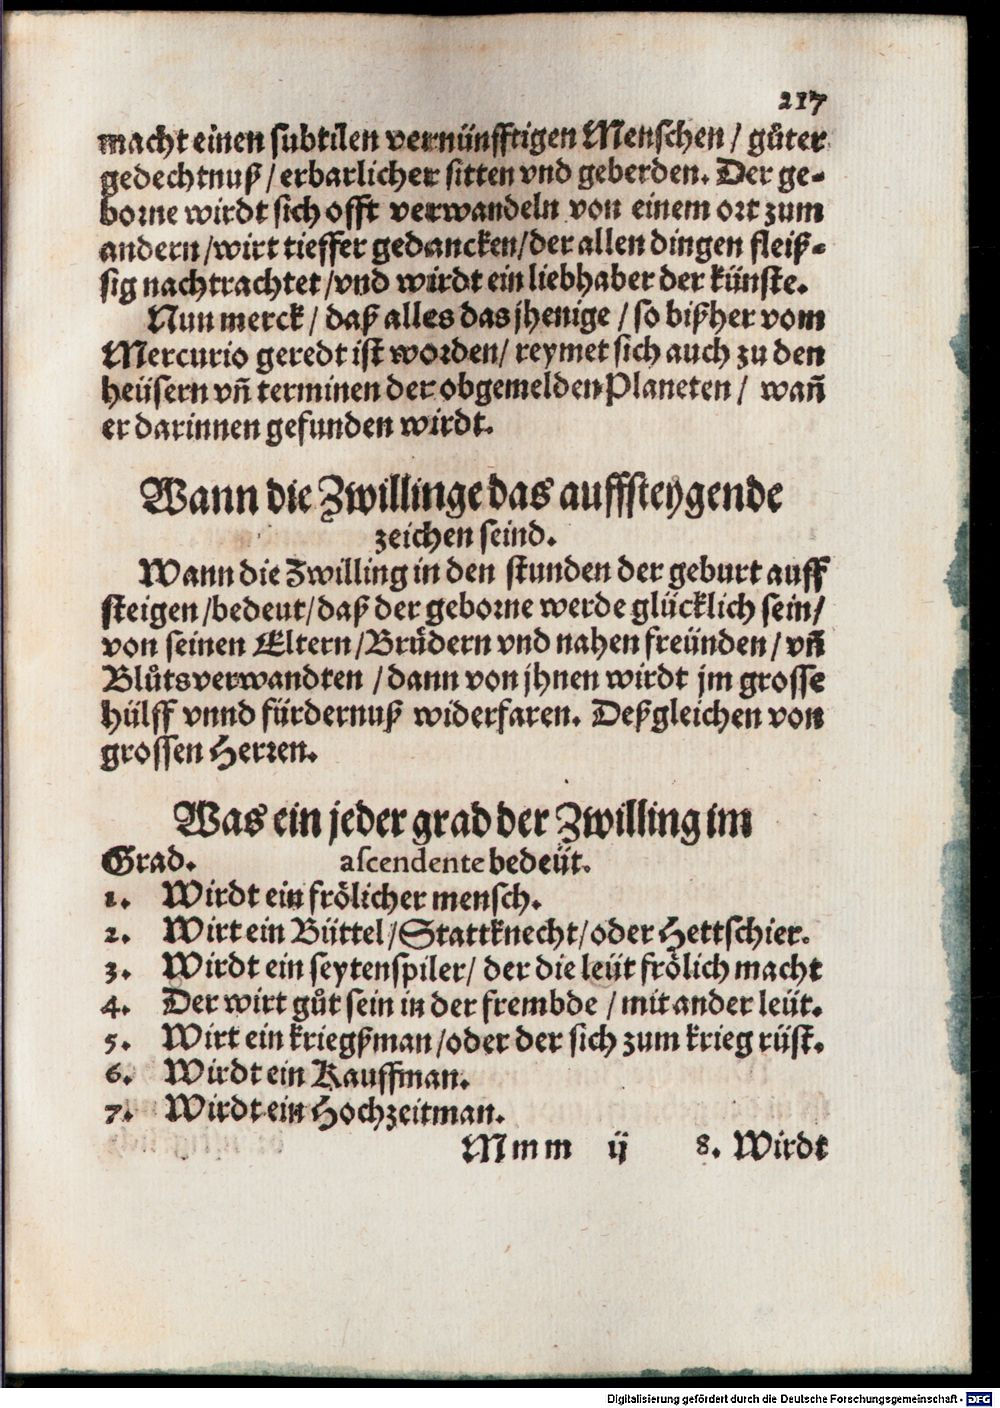 217
macht einen subtilen vernünfftigen Menschen / gůter
gedechtnuß / erbarlicher sitten vnd geberden. Der ge-
borne wirdt sich offt verwandeln von einem ort zum
andern /wirt tieffer gedancken/der allen dingen fleiß-
sig nachtrachtet /vnd wirdt ein liebhaber der künste.
Nun merck / daß alles das jhenige / so bißher vom
Mercurio geredt ist worden/ reymet sich auch zu den
heüsern vñ terminen der obgemelden Planeten / wañ
er darinnen gefunden wirdt.
Wann die Zwillinge das auffsteygende
zeichen seind.
Wann die Zwilling in den stunden der geburt auff
steigen /bedeut/daß der geborne werde glücklich sein/
von seinen Eltern/Brüdern vnd nahen freünden / vñ
Blůtsverwandten / dann von jhnen wirdt jm grosse
hülff vnnd fürdernuß widerfaren. Deßgleichen von
grossen Herren.
Was ein jeder grad der Zwilling im
Grad. ascendente bedeüt.
1. Wirdt ein frölicher mensch.
2. Wirt ein Büttel/Stattknecht/oder Hettschier.
3. Wirdt ein seytenspiler/ der die leüt frölich macht
4. Der wirt gůt sein in der frembde / mit ander leüt.
5. Wirt ein kriegßman/oder der sich zum krieg rüst.
6. Wirdt ein Kauffman.
7. Wirdt ein Hochzeitman.
Mmm ij 8. Wirdt
Digitalisierung gefördert durch die Deutsche Forschungsgemeinschaft - DFG